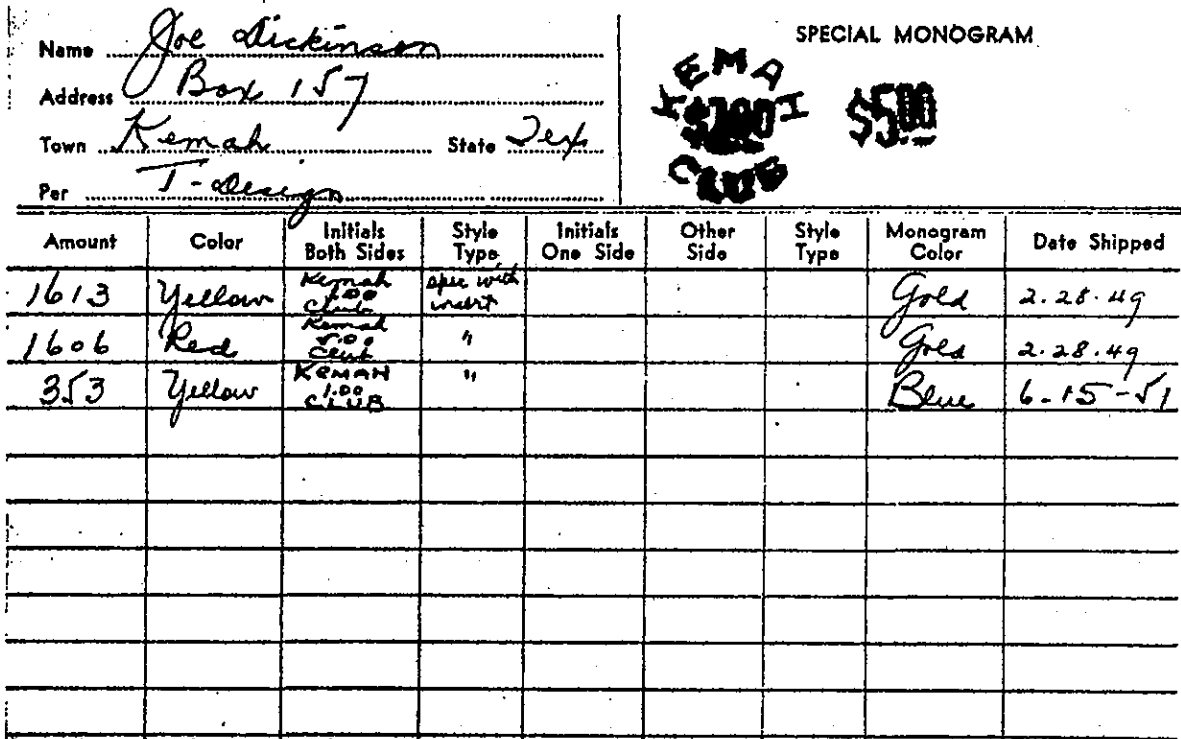 Name Joe Dickinson
Address Box 157
Town Kemah State Tex
Per T-Design
SPECIAL MONOGRAM
KEMAH
$100
CLUB
$500
Amount Color Initials Both Sides Style Type Initials One Side Other Side Style Type Monogram Color Date Shipped
1613 Yellow Kemah 1.00 Club spec with insert Gold 2.28.49
1606 Red Kemah 5.00 Club " Gold 2.28.49
353 Yellow KEMAH 1.00 CLUB " Blue 6-15-51